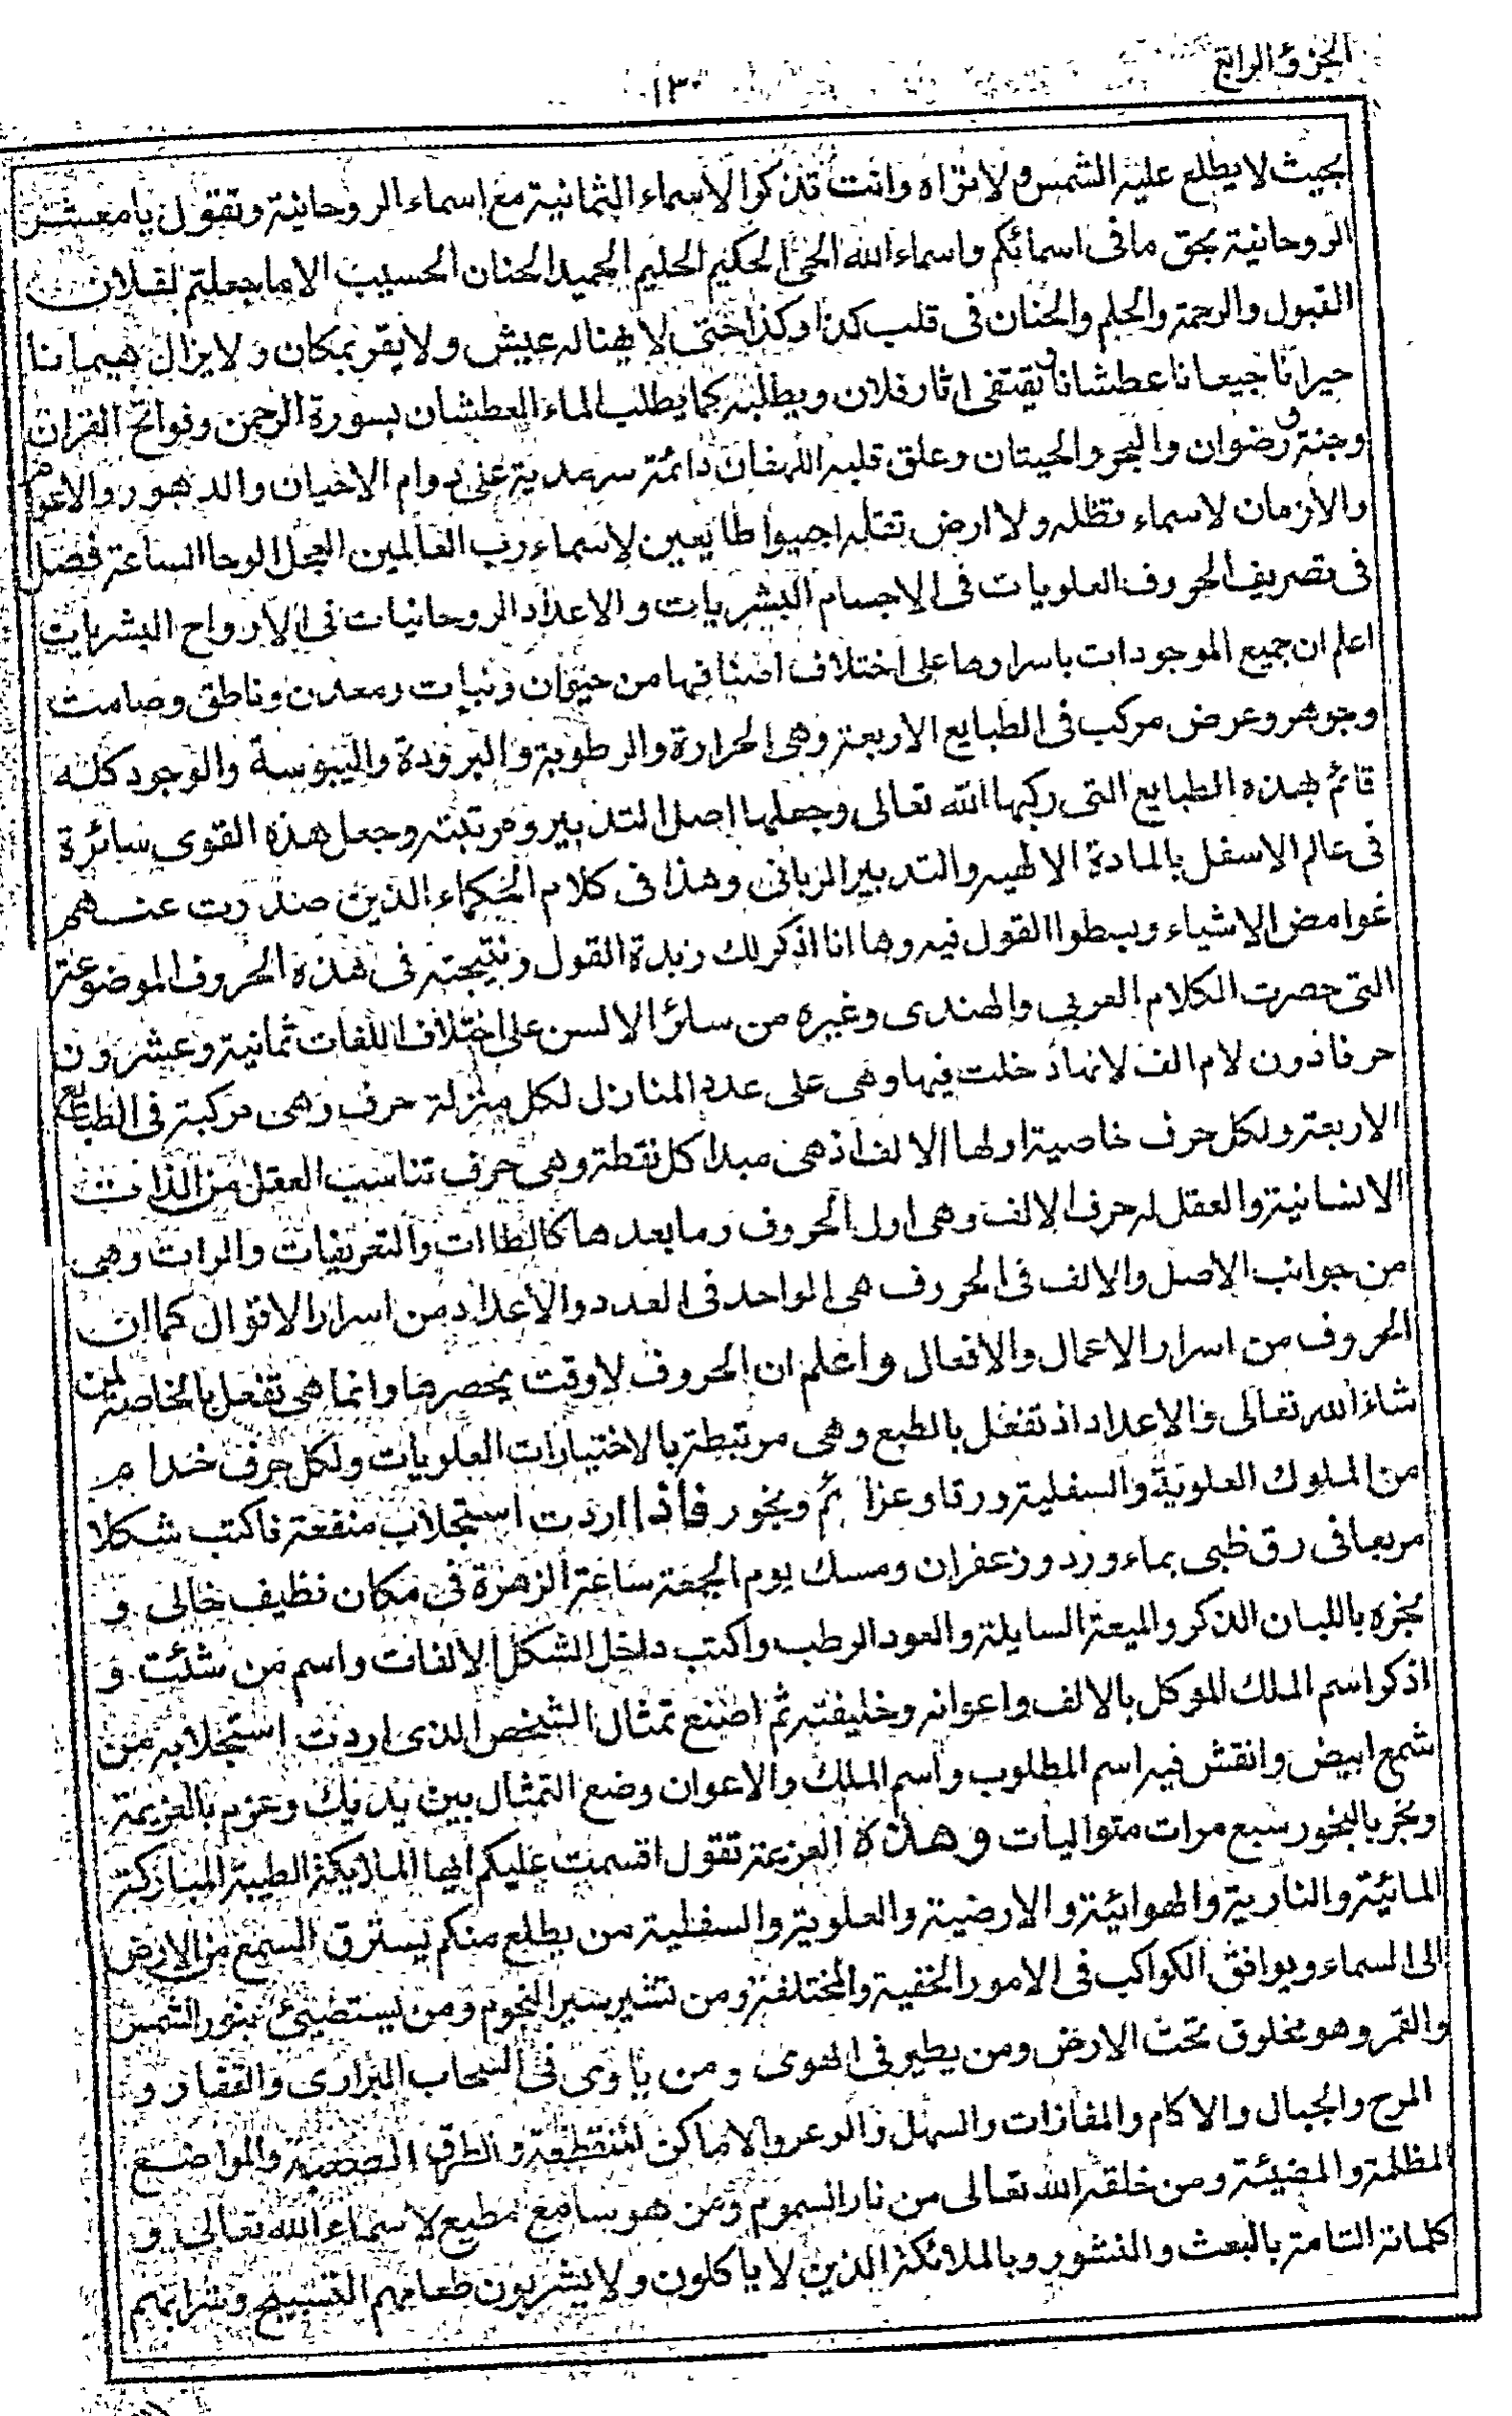 الجزؤ الرابع
١٣٠
بحيث لا يطلع عليه الشمس ولا تراه وانت تذكر الاسماء الثمانية مع اسماء الروحانية وتقول يا معشر
الروحانية بحق ما فى اسمائكم واسماء الله الحى الحكيم الحليم الحميد الحنان الحسيب الا ما جعلتم لفلان
القبول والرحمة والحلم والحنان فى قلب كذا وكذا حتى لا يهنا له عيش ولا يقر بمكان ولا يزال هيمانا
حيرانا جيعانا عطشانا و يقتفى اثار فلان ويطلبه كما يطلب الماء العطشان بسورة الرحمن وفواتح القران
وجنة و رضوان والبحر والحيتان وعلق قلبه اللهفان دائمة سرمدية على دوام الاحيان والدهور والاعوام
والازمان لا سماء تظله ولا ارض تقله اجيبوا طايعين لاسماء رب العالمين العجل الوحا الساعة فصل
فى تصريف الحروف العلويات فى الاجسام البشريات والاعداد الروحانيات فى الارواح البشريات
اعلم ان جميع الموجودات باسرارها على اختلاف اصنافها من حيوان ونبات ومعدن وناطق وصامت
وجوهر وعرض مركب فى الطبايع الاربعة وهى الحرارة والرطوبة والبرودة واليبوسة والوجود كله
قائم بهذه الطبايع التى ركبها الله تعالى وجعلها اصل التدبير ومرتبته وجعل هذه القوى سائرة
فى عالم الاسفل بالمادة الالهيه والتدبير الربانى وهذا فى كلام الحكماء الذين صدرت عنهم
غوامض الاشياء وبسطوا القول فيه وها انا اذكر لك زبدة القول ونتيجته فى هذه الحروف الموضوعة
التى حصرت الكلام العربى والهندى وغيره من سائر الالسن على اختلاف اللغات ثمانية وعشرون
حرفا دون لام الف لانها دخلت فيها وهى على عدد المنازل لكل منزلة حرف وهى مركبة فى الطبايع
الاربعة ولكل حرف خاصية اولها الالف اذ هى مبدا كل نقطة وهى حرف تناسب العقل من الذات
الانسانية والعقل له حرف الالف وهى اول الحروف وما بعدها كالطاات والتعريفات والرات وهى
من جوانب الاصل والالف فى الحروف هى الواحد فى العدد والاعداد من اسرار الاقوال كما ان
الحروف من اسرار الاعمال والافعال واعلم ان الحروف لا وقت يحصرها وانما هى تفعل بالخاصية لمن
شاء الله تعالى والاعداد اذ تفعل بالطبع وهى مرتبطة بالاختيارات العلويات ولكل حرف خدام
من الملوك العلوية والسفلية ورقا وعزائم وبخور فاذا اردت استجلاب منفعة فاكتب شكلا
مربعا فى رق ظبى بماء ورد وزعفران ومسك يوم الجمعة ساعة الزهرة فى مكان نظيف خالى و
بخره باللبان الذكر والميعة السايلة والعود الرطب واكتب داخل الشكل الالفات واسم من شئت و
اذكر اسم الملك الموكل بالالف واعوانه وخليفته ثم اصنع تمثال الشخص الذى اردت استجلابه من
شمع ابيض وانقش فيه اسم المطلوب واسم الملك والاعوان وضع التمثال بين يديك وعزم بالعزيمة
وبخر بالبخور سبع مرات متواليات وهذه العزيمة تقول اقسمت عليكم ايها الملايكة الطيبة المباركة
المائية والنارية والهوائية والارضية والعلوية والسفلية من يطلع منكم يسترق السمع من الارض
الى السماء ويوافق الكواكب فى الامور الخفية والمختلفة ومن تسير سير النجوم ومن يستضيئ بنور الشمس
والقمر وهو مخلوق تحت الارض ومن يطير فى الهوى ومن ياوى فى السحاب البرارى والقفار و
المرج والجبال والاكام والمفازات والسهل والوعر والاماكن المنقطعة والطرق والمواضع
المظلمة والمضيئة ومن خلقه الله تعالى من نار السموم ومن هو سامع مطيع لاسماء الله تعالى و
كلماته التامة بالبعث والنشور وبالملائكة الذين لا ياكلون ولا يشربون طعامهم التسبيح وشرابهم